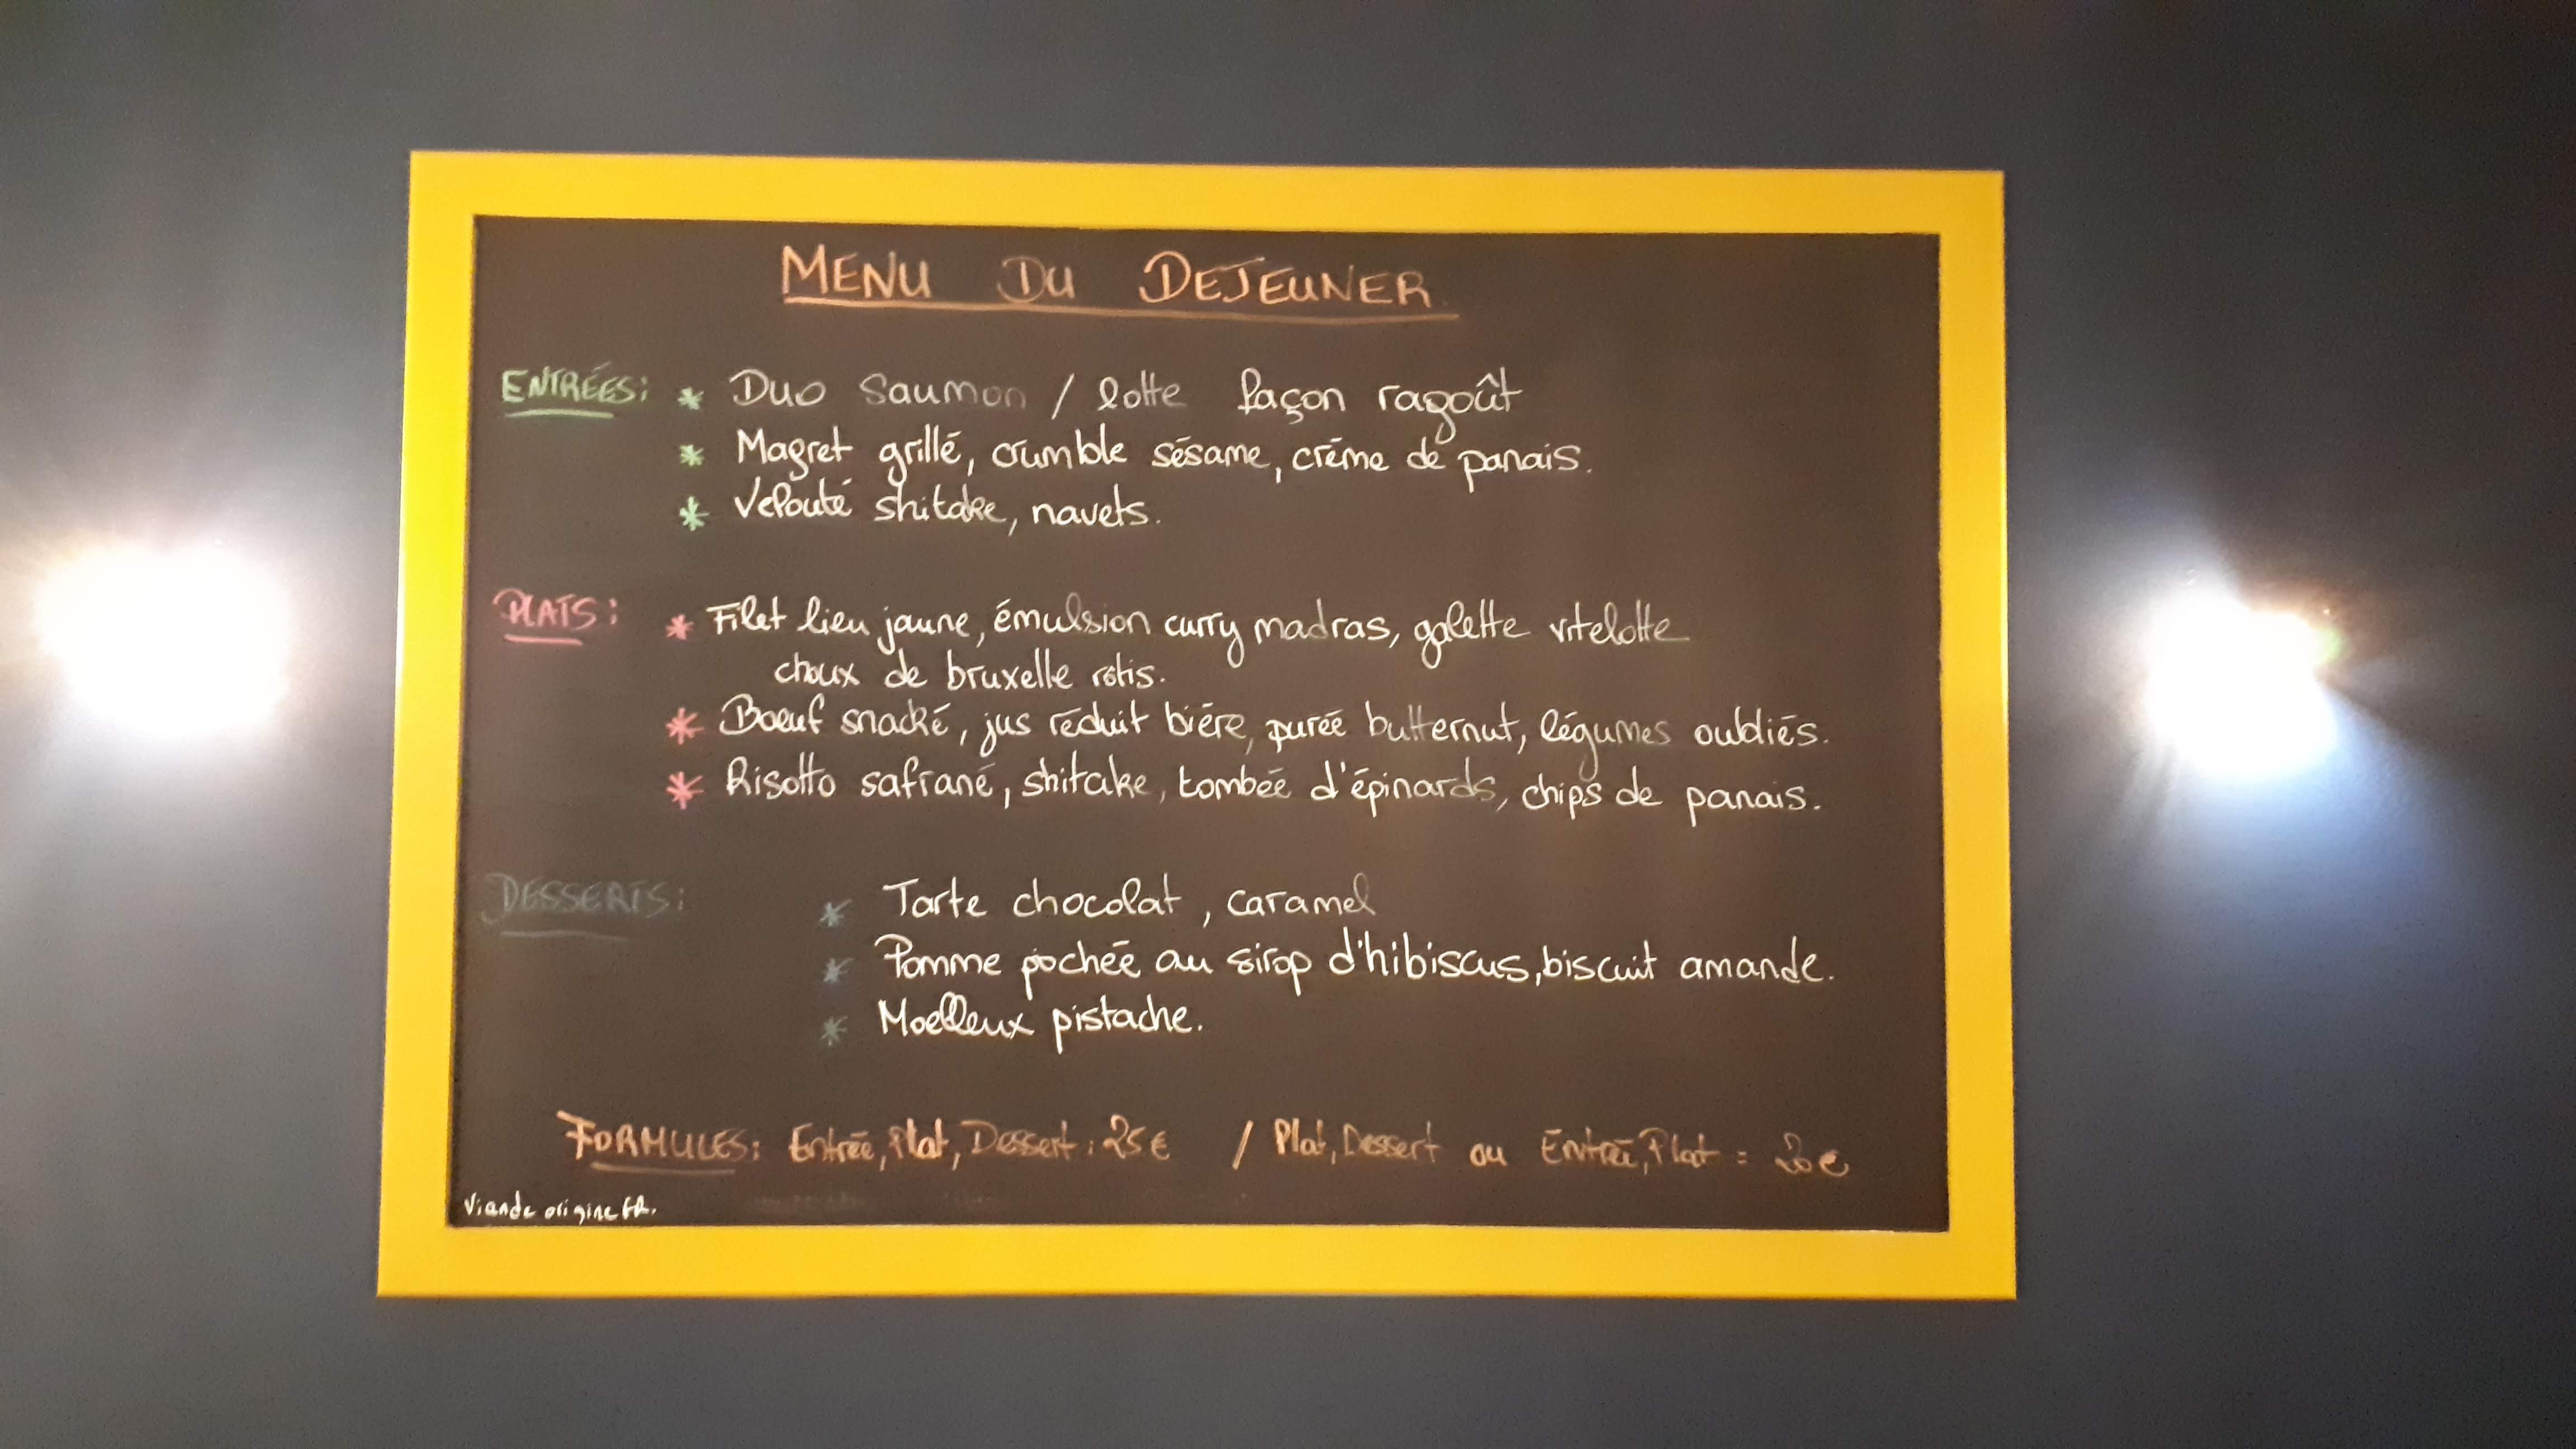 MENU DU DEJEUNER
ENTRÉES: * Duo Saumon / lotte façon ragoût
* Magret grillé, crumble sésame, crème de panais.
* Velouté shitake, navets.
PLATS: * Filet lieu jaune, émulsion curry madras, galette vitelotte
choux de bruxelle rôtis.
* Boeuf snacké, jus réduit bière, purée butternut, légumes oubliés.
* Risotto safrané, shitake, tombée d'épinards, chips de panais.
DESSERTS: * Tarte chocolat, caramel
* Pomme pochée au sirop d'hibiscus, biscuit amande.
* Moelleux pistache.
FORMULES: Entrée, Plat, Dessert: 25€ / Plat, Dessert ou Entrée, Plat = 20€
Viande origine FR.